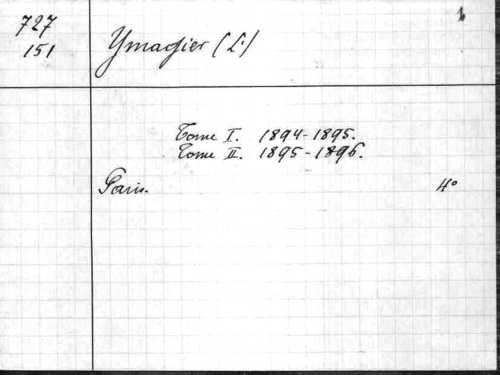 727
151
Ymagier (L')
1
Tome I. 1894-1895.
Tome II. 1895-1896.
Paris.
4°